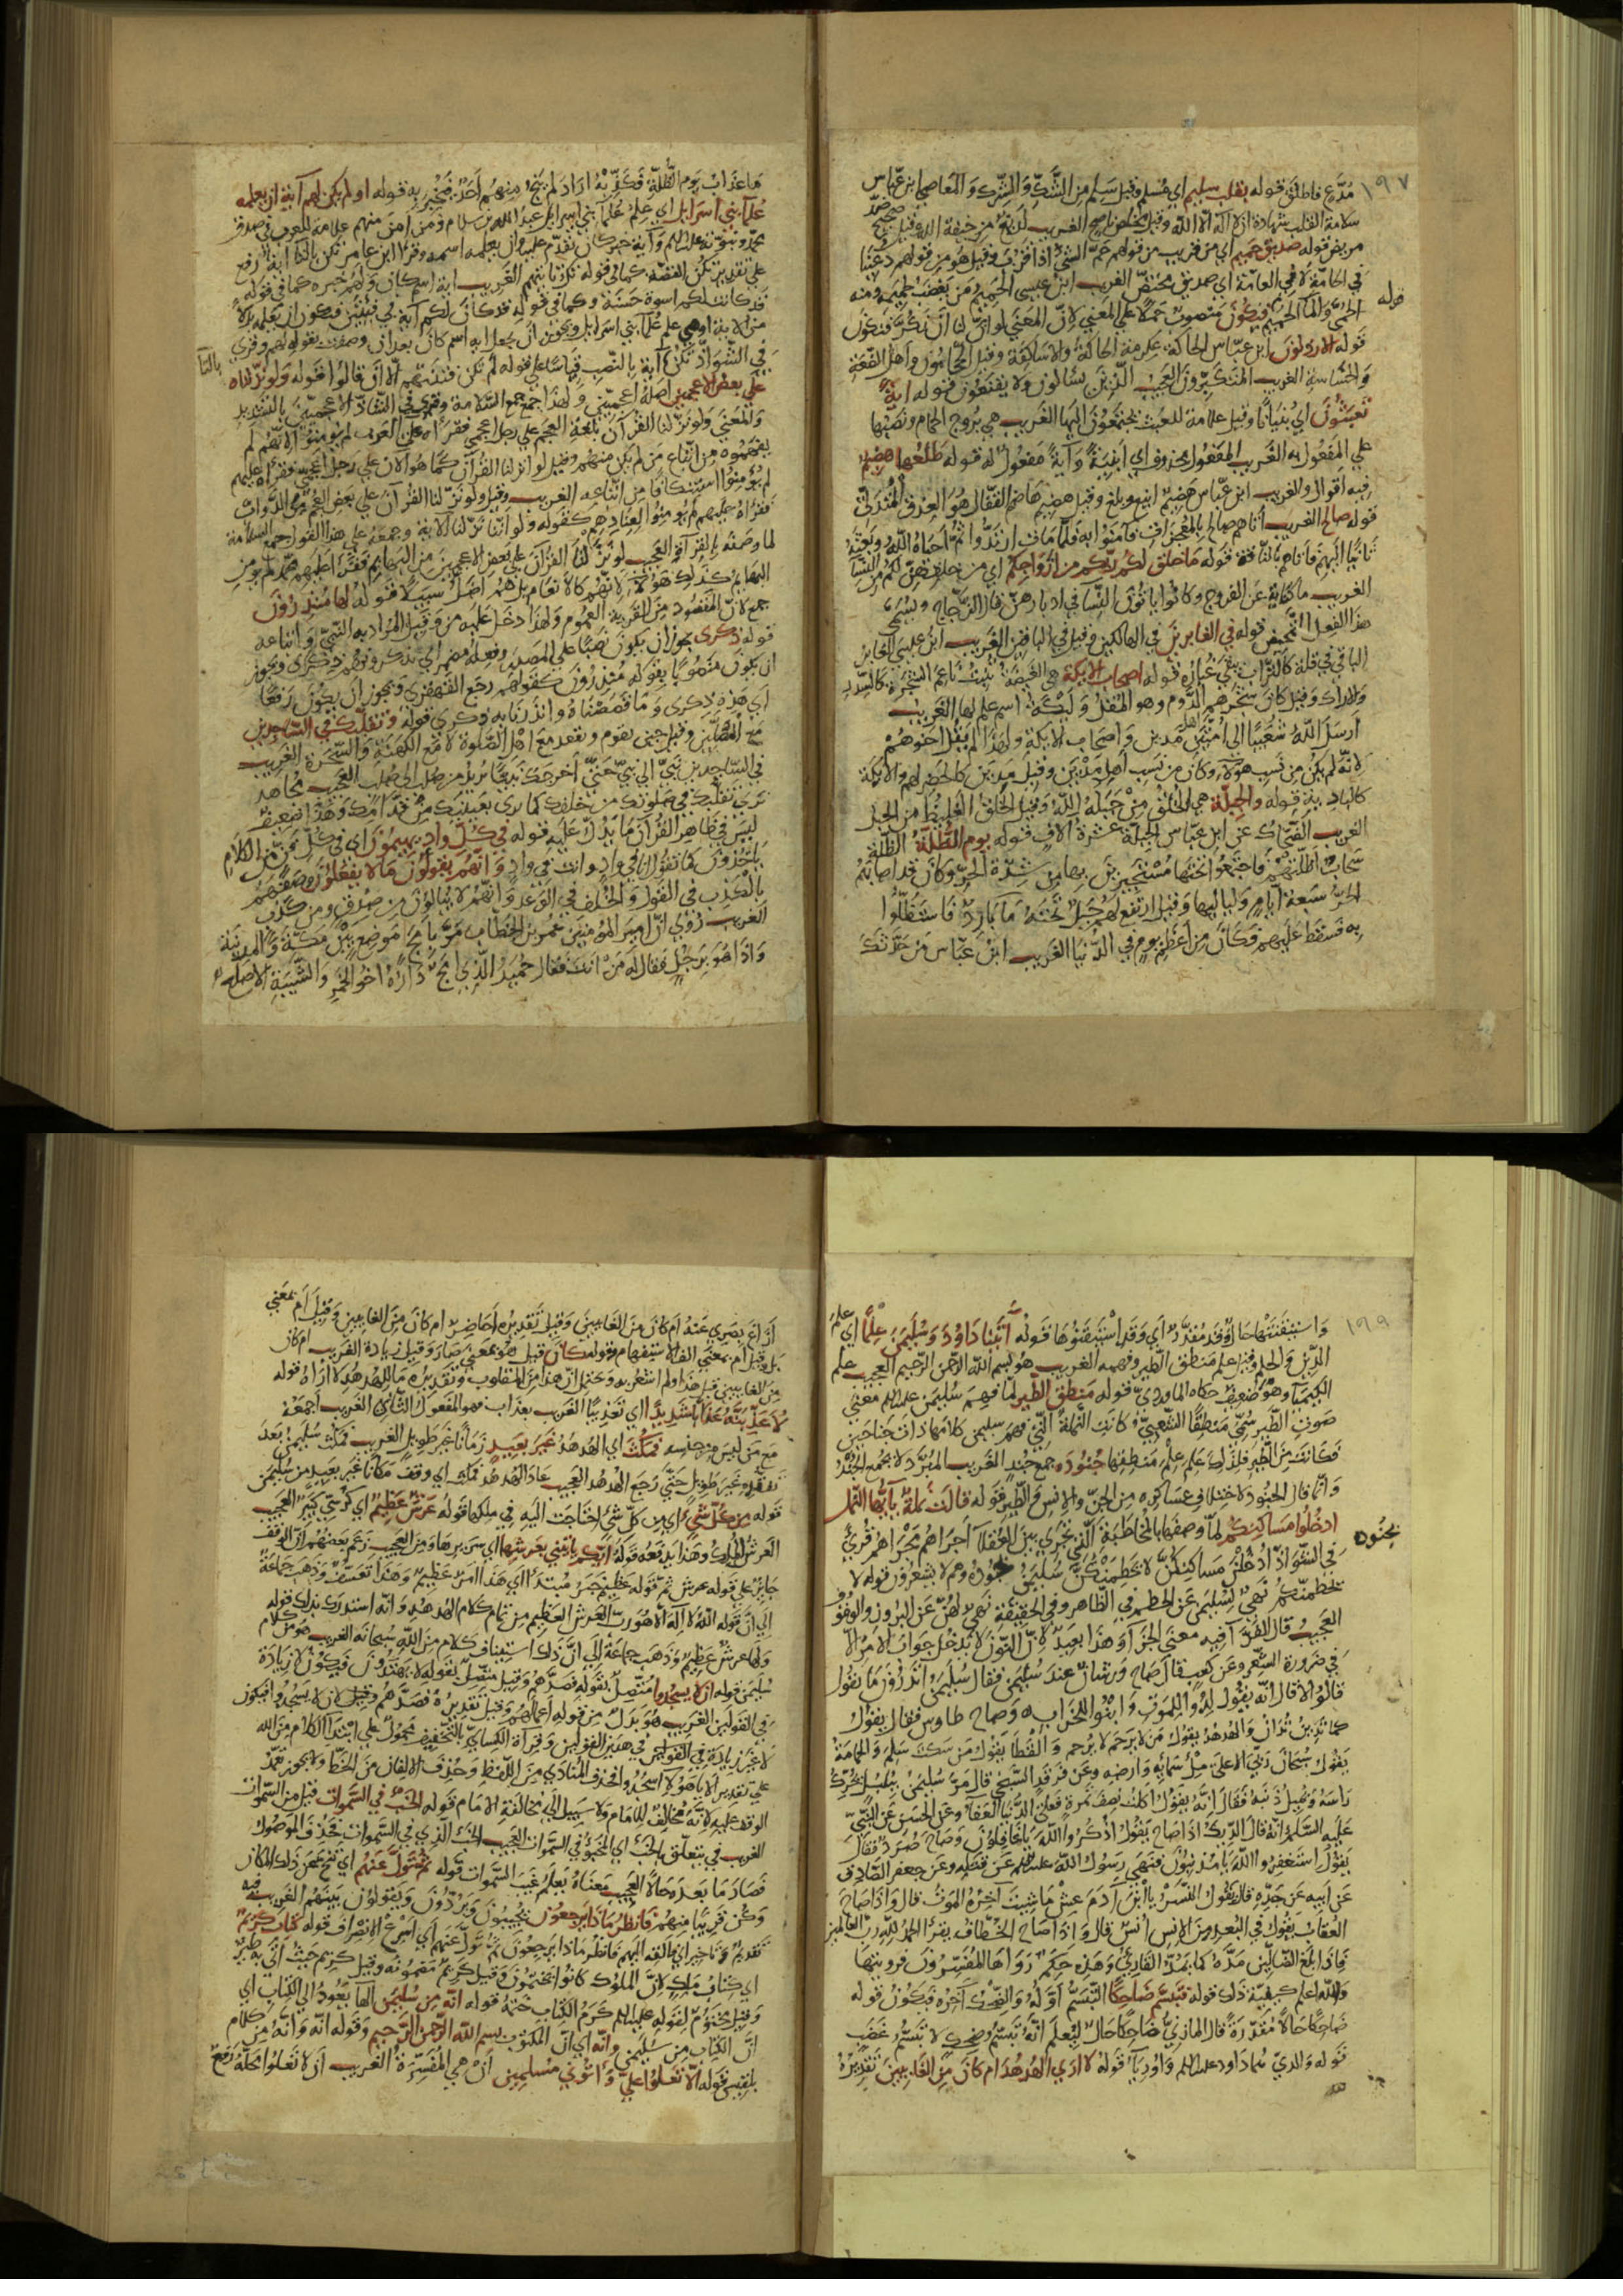 ١٩٧
مُدَّعٍ فاطلق قوله بقلب سليم اي مُسلم وقيل سَلِم من الشَّكّ والشِّرك والمعاصي ابن عبّاس
سلامة القلب شهادة ان لا اله الا الله وقيل
مريض قوله صديق حميم اي من قريب من قولهم حَمّ الشيُ اذا قرُب وقيل هو من قولهم دُعينا
في الحامّة لا في العامّة اي صديق مختصّ الغريب ابن عيسى الحميم مَن يغضب لحميمه ومنه
الحُمّى والماء الحميم فنكون منصوبٌ حملًا على المعنى لانّ المعنى لو انّ لنا ان نكرّ فنكون
قوله
قوله الارذلون ابن عبّاس الحاكة عكرمة الحاكة والاساكفة وقيل الحجّامون واهل الضِّعة
والخساسة الغريب المتكبّرون العجيب الّذين يسألون ولا يقنعون قوله آية
تعبثون اي بنيانًا وقيل علامة للعبث يجتمعون اليها الغريب هي بُروج الحمام ونصبها
على المفعول به الغريب المفعول محذوف اي ابنيةً وآيةً مفعول له قوله طلعها هضيم
فيه اقوال والغريب ابن عبّاس هضيم اينع وبلغ وقيل هضيم هاضم القفّال هو العِذق المُتدلّي
قوله صالح الغريب اتاهم صالح بالمعجزات فآمنوا به فلمّا مات ارتدّوا ثمّ احياه الله وبعثه
ثانيًا اليهم فاتاهم بالنّاقة قوله ما خلق لكم ربّكم من ازواجكم اي من خلقهنّ لكم من النّسا
الغريب ما كنايةٌ عن الفروج وكانوا ياتون النّسا في ادبارهنّ قال الزّجّاج ويسمّى
هذا الفعل التّحميض قوله في الغابرين في الهالكين وقيل في الباقين الغريب ابن عيسى الغابر
الباقي في قلة كالتراب يبقى غُباره قوله اصحاب الايكة هي الغيضة تُنبت ناعم الشّجر كالسّدر
والاراك وقيل كان شجرهم الدَّوم وهو المُقل ولَيكة اسم علم لها الغريب
ارسل الله شُعيبًا الى امّتين اهل مَدين واصحاب الايكة ولهذا لم يقل اخوهم
لانّه لم يكن من نسب هؤلاء وكان من نسب اهل مَدْيَن وقيل مَدين كالحضر لهم والايكة
كالبادية قوله والجبِلّة هي الخَلْقُ مِنْ جَبَلَهُ الله وقيل الخلق الغليظ من الجبل
الغريب الضّحّاك عن ابن عبّاس الجِبلّة عشرة الاف قوله يوم الظّلّة الظّلّة
سحابٌ اظلّتهم فاجتمعوا تحتها مُسْتجيرين بها مِن شدّة الحرّ وكان قد اصابهُم
الحرّ سبعة ايّام ولياليها وقيل ارتفع لهم جبلٌ تحته مَا باردٌ فاستظلّوا
به فسقط عليهم فكان من اعظم يوم في الدّنيا الغريب ابن عبّاس مَن حدّثك
ما عذاب يوم الظّلّة فكذّبه اراد لم ينج منهم احد فيخبر به قوله اولم يكن لهم آية ان يعلمه
عُلمآء بني اسرآئل اي عِلمُ عُلمآ بني اسرايل عبد الله بن سلام ومَن آمن منهم علامة للعرب في صدق
محمّد ونبوّته عليه السلم وآية خبر كان تقدّم عليه وان يعلمه اسمه وقرا ابن عامر تكن بالتّا آيةٌ رفع
على تقدير تكن القصّة كما في قوله تكن تاتيهم الغريب آية اسم كان ولهم خبره كما في قوله
قد كانت لكم اسوة حسنة وكما في قوله قد كان لكم آيةٌ في فئتين ويكون ان يعلمه بدلًا
من الاية او هي علم عُلمآ بني اسرايل ويجوز ان يجعل ايه اسم كان بعد ان وصفت بقوله لهم وقرئ
في الشّواذّ تكن آيةً بالنّصب قياسًا على قوله ثم لم تكن فتنتهم الّا ان قالوا قوله ولو نزّلناه
بالتآ
على بعض الاعجمين اصله اعجميّين ولهذا جمع جمع السّلامة وقرئ في الشّاذّ الاعجميّين بالتشديد
والمعنى ولو نزّلنا القرآن بلغة العجم على رجل اعجمي فقرأه على العرب لم يؤمنوا لانّهم لم
يفهموه من اتّباع مَن لم يكن منهم وقيل لو انزلنا القرآن كما هو الان على رجل اعجمي فقرأه عليهم
لم يؤمنوا استنكافًا من اتّباعه الغريب وقيل ولو نزّلنا القرآن على بعض العجم من الدّوابّ
فقرأهُ عليهم لم يؤمنوا لعنادهم كقوله ولو انّنا نزّلنا الاية وجمعه على هذا القول جمع السّلامة
لما وصفه بالقرآءة العجيب لو نزّلنا القرآن على بعض الاعجمين من البهايم فقرأ عليهم محمّد لم يؤمن
البهايم كذلك هؤلاء لانّهم كالانعام بل هُم اضلّ سبيلًا قوله لها منذرون
جمع لانّ المقصود من القرية العموم ولهذا دخل عليه مِن وقيل المراد به النّبيّ واتباعه
قوله ذكرى يجوز ان يكون نصبًا على المصدر وفعله مضمر اي يذكّرونهم ذكرى ويجوز
ان يكون منصوبًا بقوله مُنذرون كقولهم رجع القهقرى ويجوز ان يكون رفعًا
اي هذه ذكرى وما قصصناه وانذرنا به ذكرى قوله وتقلّبك في السّاجدين
مع المُصلّين وقيل حين تقوم وتقعد مع اهل الصّلوة لا مع الكهنة والسّحرة الغريب
في السّاجدين من نبيّ الى نبيّ حتّى اخرجك نبيًّا يريد من صلب الى صلب العجيب مجاهد
ترى تقلّبك في صلوتك من خلفك كما ترى بعينيك مِن قدّامك وهذا ضعيف
ليس في ظاهر القرآن ما يدُلّ عليه قوله في كلّ وادٍ يهيمون اي في كلّ فنّ مِن الكلام
ياخُذون كما تقُول انا في وادٍ وانت في وادٍ وانّهم يقولون ما لا يفعلون وصفهُم
بالكذب في القول والخُلف في الوَعد وانّهم لا يُبالون من صدق ومن كذب
الغريب رُوي انّ امير المؤمنين عمر بن الخطّاب مرّ بامج موضع بين مكّة والمدينة
واذا هو برجُلٍ فقال له مَنْ انت فقال حُميدُ الّذي امجٌ دارُهُ اخو الخمر والشّيبة الاصلع
١٩٩
واستيقنتها حالٌ وقد مُقدّر اي وقد استيقنوها قوله آتينا داود وسليمن علمًا اي علم
الدين والحكم وقيل علم منطق الطّير وفهمه الغريب هو بسم الله الرّحمن الرّحيم العجيب علم
الكيميا وهو ضعيفٌ حكاه الماورديّ قوله منطق الطّير لما فهِم سليمن عليه السلم معنى
صَوت الطّير سُمّي منطقًا الشّعبيّ كانت النّملة الّتي فهم سليمن كلامها ذات جناحين
فكانت من الطّير فلذلك عَلِم عِلْمَ منطقها جُنُوده جمع جُندٍ الغريب المُبرّد لا يجمع الجند
وانّما قال الجنُود لاختلاف عساكره من الجنّ والانس والطّير قوله قالت نملةٌ يآيّها النّمل
ادخُلوا مساكنكم لمّا وصفها بالمخاطبة الّتي تجري بين العقلآ اجراهم مجراهم قُرئ
بجنُوده
في الشّواذّ ادخُلْنَ مساكنكنّ لا يحطِمَنْكُنَّ سُليمن وجنُوده وهم لا يشعرون قوله لا
يحطِمنّكم نَهيٌ لسليمن عن الحطم في الظّاهر وفي الحقيقة نَهيٌ لهُنّ عن البُروز والوقوف
العجيب قال الفرّآ فيه معنى الجزآ وهذا بعيد لانّ النّون لا يدخل جواب الامر الّا
في ضرورة الشّعر وعن كعب قال صاح ورشانٌ عند سُليمن فقال سُليمن اتدرون ما يقول
قالوا لا قال انّه يقول لِدُوا للموت وابنُوا للخراب وصاح طاوس فقال يقول
كما تدين تُدان والهدهد يقول مَن لا يرحم لا يُرحم والقطا يقول مَن سكت سلم والحمامة
يقول سُبحان ربّي الاعلى مِلْ سمآئِه وارضِه وعن فرقد السّبخي قال مرّ سُليمن ببُلبُلٍ يُحرّك
رأسه ويُميلُ ذنبه فقال انّه يقول اكلت نصف تمرة فعلى الدُّنيا العفآ وعن الحسن عن النّبيّ
عليه السّلم انّه قال الدّيك اذا صاح يقول اذكُروا الله يا غافلون وصاح صُرَدٌ فقال
يقُول استغفِروا الله يا مذنبون فنهى رسُول الله عليه السلم عن قتله وعن جعفر الصّادق
عن ابيه عن جدّه قال يقول النّسر يا ابن آدم عش ما شِيتَ آخِرُه الموت قال واذا صاح
العُقاب يقول في البُعد من الانس اُنسٌ قال واذا صاح الخُطّاف يقرأ الحمد لله ربّ العالمين
فاذا بلغ الضّالين مدّه كما يمُدّ القارئ وهذه حكمٌ رواها المفسّرون فرويتها
والله اعلم كيفيّة ذلك قوله فتبسّم ضاحكًا التّبسّم اوّله والضّحك آخره فيكون قوله
ضاحكًا حالًا مقدّرةً قال المازنيّ ضاحكًا حالٌ ليُعلم انّه تبسّمُ ضحك لا تبسّمُ غضب
قوله والديّ هما داود عليه السلم واوريآ قوله لا ارى الهدهد ام كان من الغايبين تقديره
أزاغ بصرى عنه ام كان من الغايبين وقيل تقديره أحاضرٌ ام كان من الغايبين وقيل أم بمعنى
بل وقيل ام بمعنى الف الاستفهام وقوله كان قيل هو بمعنى صار وقيل زيادة الغريب ام كان
مِن الغايبين قبل هذا ولم اشعر به ويحتمل انّ هذا من المقلوب وتقديره ما للهدهد لا اراه قوله
لاعذّبنّه عذابًا شديدًا اي تعذيبًا الغريب بعذاب فهو المفعول الثّاني الغريب اجمعه
مع مَن ليس مِن جنسه فمكث اي الهدهد غير بعيد زمانًا غير طويل الغريب فمكث سليمن بعد
تفقّده غير طويل حتّى رجع الهدهد العجيب عاد الهدهد فمكث اي وقف مكانًا غير بعيدٍ من سُليمن
قوله من كلّ شيءٍ اي مِن كلّ شيء احتاجت اليه في ملكها قوله عرشٌ عظيمٌ اي كُرسيّ كبير العجيب
العرش المُلك وهذا يدفعه قوله ايّكم ياتيني بعرشها اي سريرها ومن العجيب زعم بعضهم انّ الوقف
جائزٌ على قوله عرش ثمّ قوله عظيم خبر مُبتدأ اي هذا امرٌ عظيمٌ وهذا تعسّفٌ وذهب جماعة
الى انّ قوله الله لا اله الّا هو ربّ العرش العظيم من تمام كلام الهدهد وانّه استدرك بذلك قوله
ولها عرش عظيم وذهب جماعة الى انّ ذلك استيناف كلام من الله سبحانه الغريب هو من كلام
سليمن قوله ان لا يسجدوا متّصلٌ بقوله فصدّهم وقيل متّصل بقوله لا يهتدون فيكون لا زيادة
في القولين الغريب هو بدلٌ مِن قوله اعمالهم وقيل تقديره فصدّهم وقيل لان لا يسجدوا فيكون
لا غير زيادة في القولين في هذين القولين وقرآة الكسايّ بالتّخفيف محمولٌ على ابتدآ الكلام من الله
على تقدير ألا يا هؤلا اسجُدوا فحُذف المنادى من اللّفظ وحُذف الالفان من الخطّ ولا يجوز تعمّد
الوقف عليه لانّه مخالفٌ للامام ولا سبيل الى مخالفة الامام قوله الخبء في السّموات قيل من السّموات
الغريب في يتعلّق بالخبء اي المخبُوّ في السّموات العجيب الخبء الّذي في السّموات فحُذف الموصول
فصار ما بعده حالًا العجيب معناه يعلم غيب السّموات قوله ثمّ تولّ عنهم اي تنحّ عن ذلك المكان
وكُن قريبًا منهم فانظر ماذا يرجعون يُجيبون ويَرُدّون ويقولون بينهم الغريب فيه
تقديمٌ وتاخيرٌ اي فالقه اليهم فانظر ماذا يرجعون ثم تولّ عنهم اي اسرع الانصراف قوله كتاب كريم
اي كتابُ ملكٍ لانّ الملوك كانوا يختمون وقيل كريمٌ مضمونه وقيل كريم حيث اتى به طيرٌ
وقيل مختومٌ لقوله عليه السلم كرمُ الكتاب ختمه قوله انّه من سُليمن الهآ يعُود الى الكتاب اي
انّ الكتاب مِن سُليمن وانّه اي انّ المكتوب بسم الله الرّحمن الرّحيم وقوله انّه وانّه من كلام
بلقيس قوله الّا تعلوا عليّ وأتوني مسلمين انْ هي المفسّرة الغريب ان لا تعلوا محلّه رفعٌ